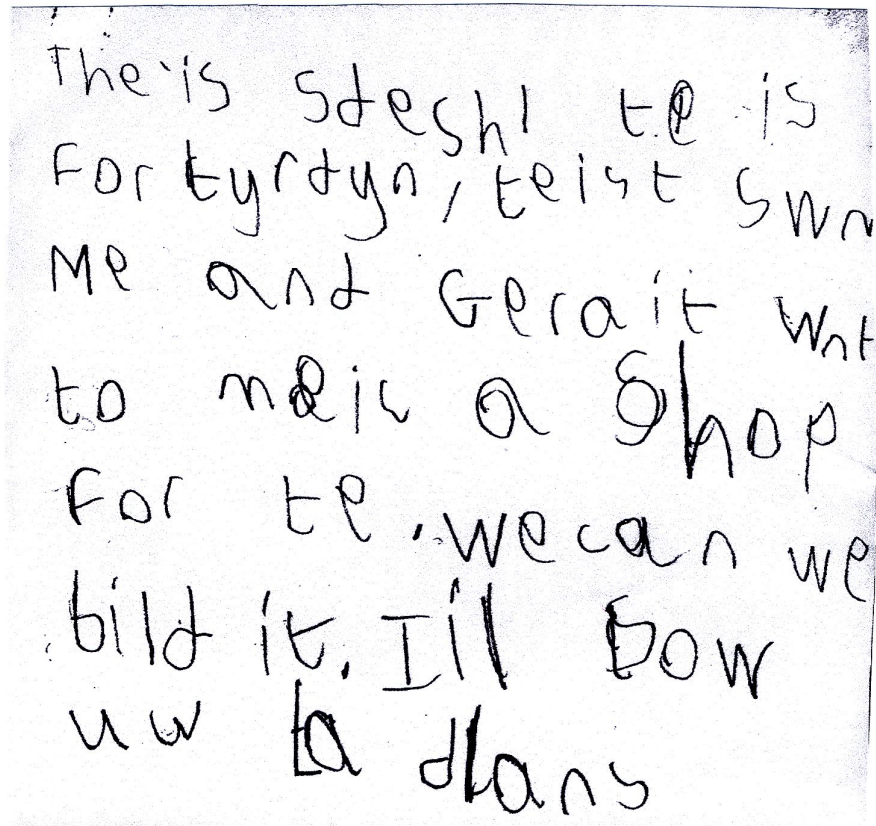 The is sdeshl te is
For tyrdyn, teist swn
Me and Gerait wnt
to meic a Shop
For te. we can we
bild it. Iil Dow
uw ta dlans